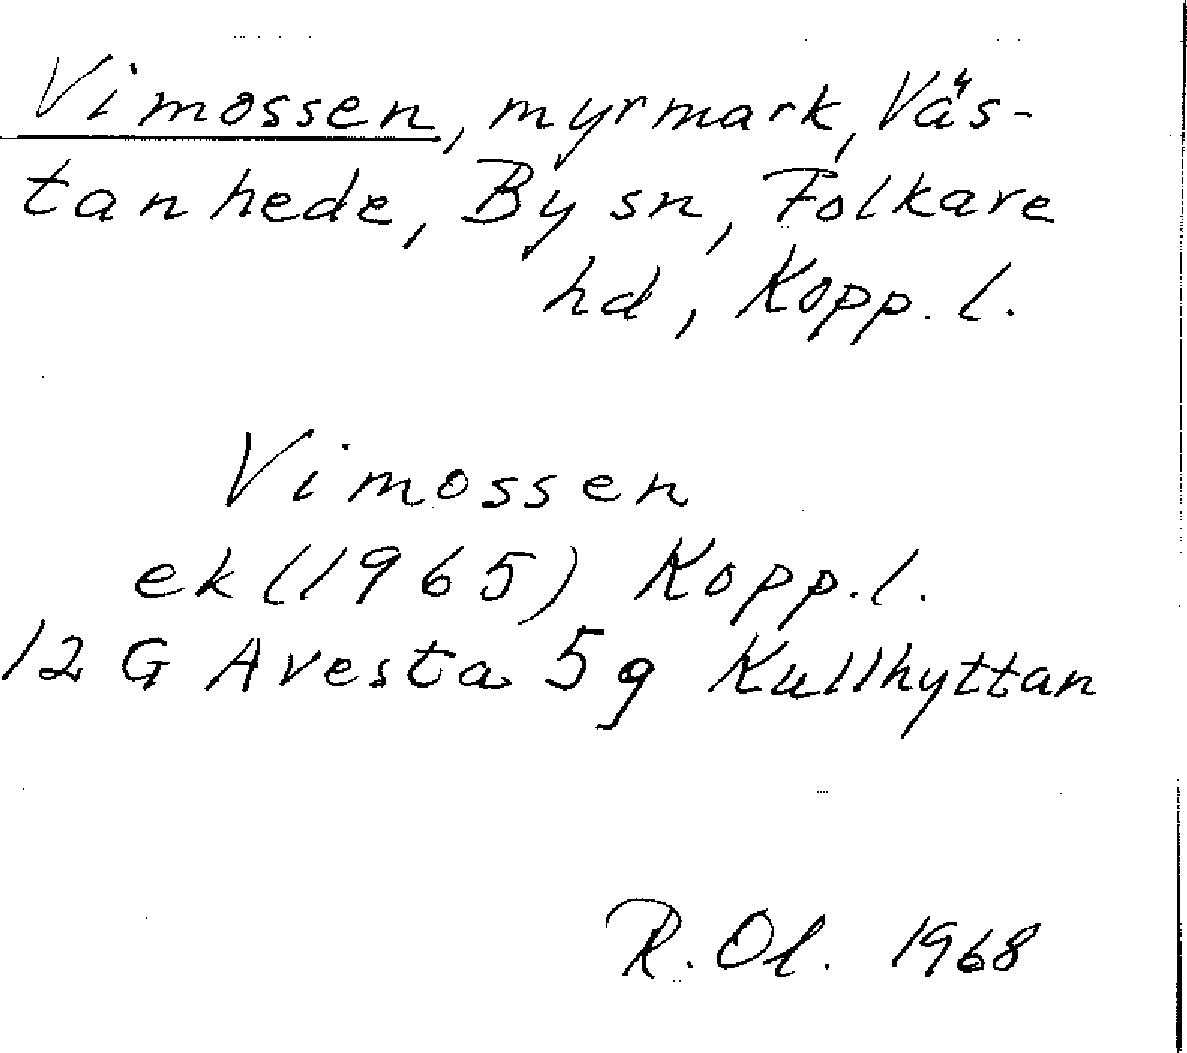 Vimossen, myrmark, Väs-
tanhede, By sn, Folkare
hd, Kopp. l.
Vimossen
ek (1965) Kopp. l.
12 G Avesta 5g Kullhyttan
R. Ol. 1968